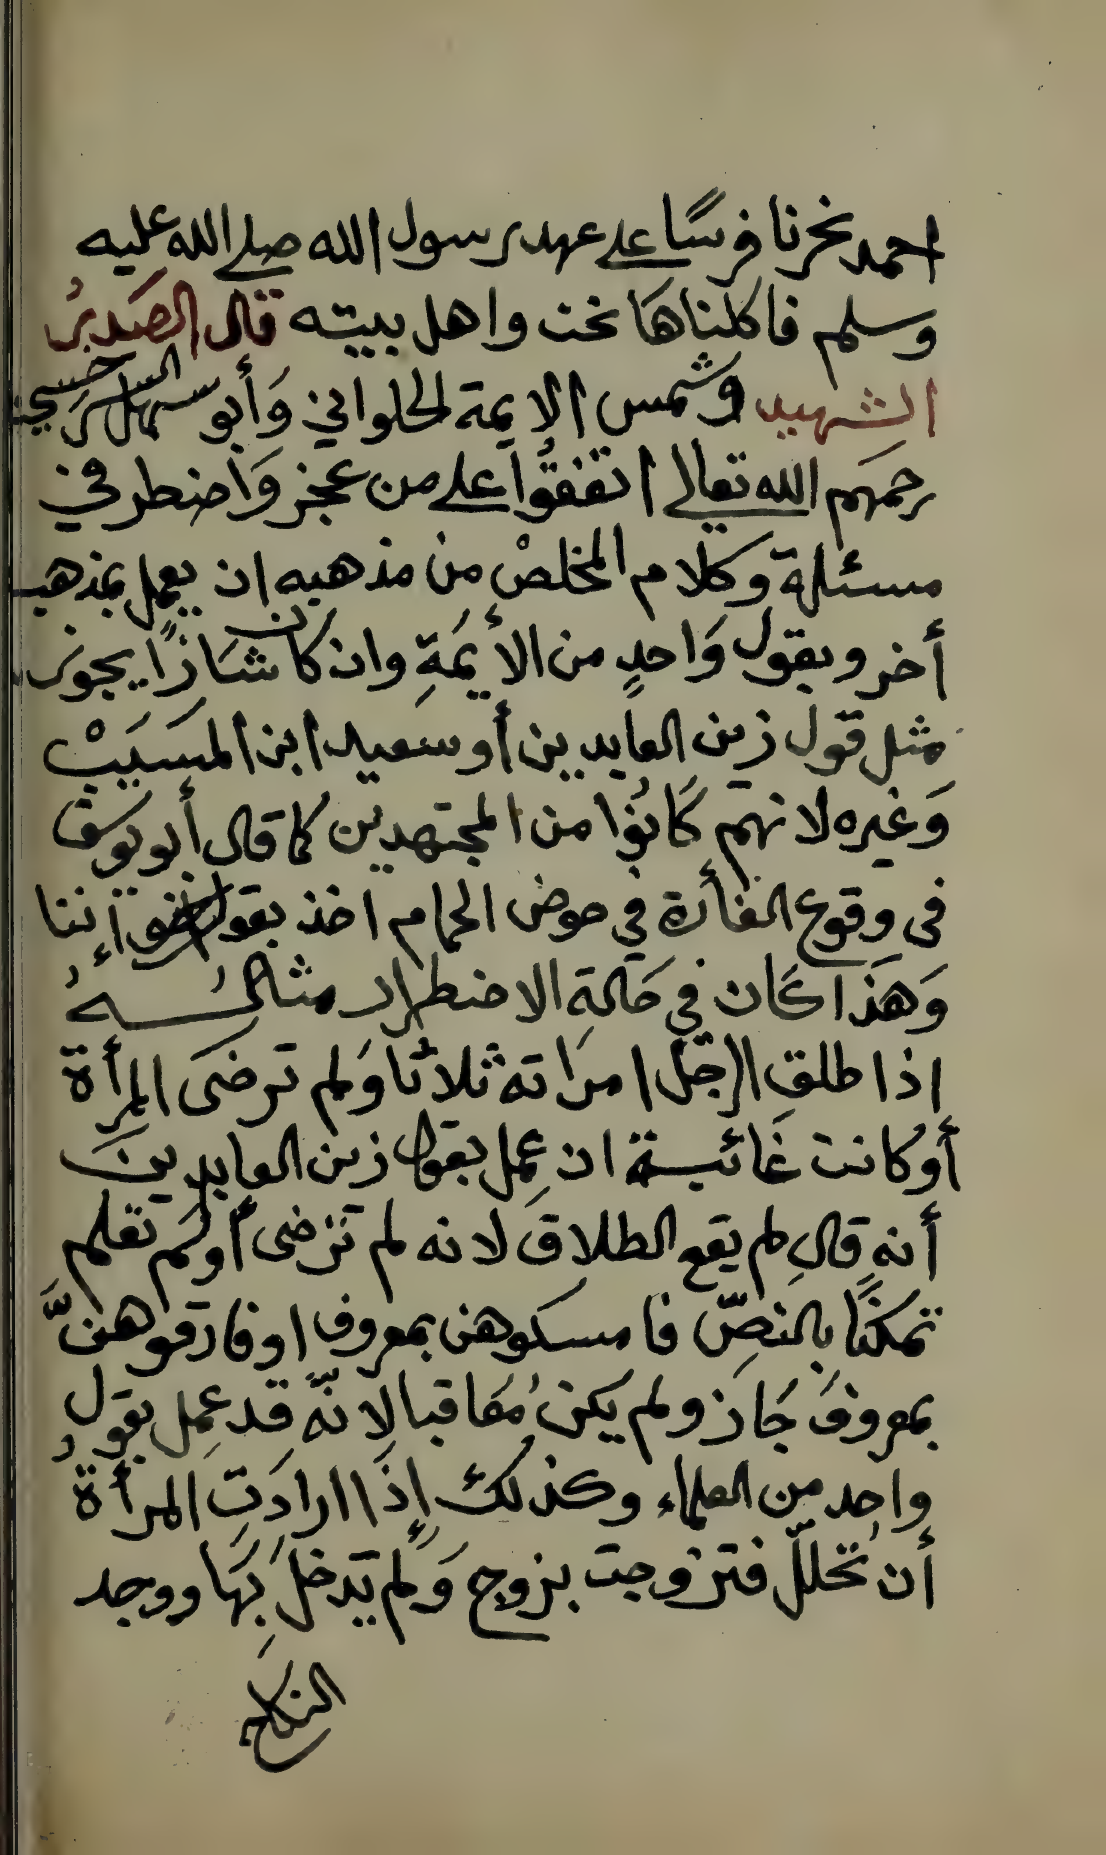 احمد نحرنا فرسًا على عهد رسول الله صلى الله عليه
وسلم فاكلناها نحن واهل بيته قال الصَدرُ
الشهيد وشمس الايمة الحلواني وَأبو سهل السرخسي
رحمَهم الله تعالى اتفقُوا على من عجز وَاضطر في
مسئلة وكلام المخلصْ من مذهبه ان يعمل بمذهب
أخر وبقول وَاحدٍ من الأيمَةِ وان كان شاذًا يجوز
مثل قول زين العابدين أو سَعيد ابن المسَيَبْ
وَغيره لانهم كَانُوا من المجتهدين كما قال أبو يوسف
في وقوع الفأرة في حوض الحمام اخذ بقول إننا
وَهذا كان في حَالةِ الاضطرار مثالهُ
اذا طلق الرجل امراته ثلاثا وَلم ترضَى المرأة
أو كانت غَائبة ان عمِل بقول زين العابدينَ
أنه قال لم يقع الطلاق لانه لم تَرضى أو لم تعلم
تمكنًا بالنصِّ فامسكوهن بمعروف او فارقوهنَّ
بمعروف جَاز ولم يكن مُعَاقبا لانّه قد عمِل بقول
واحد من العلماء وكذلك إذَا ارادَتِ المرأة
أن تُحلل فتزوجت بزوج وَلم يَدخلَ بهَا ووجد
النكاح